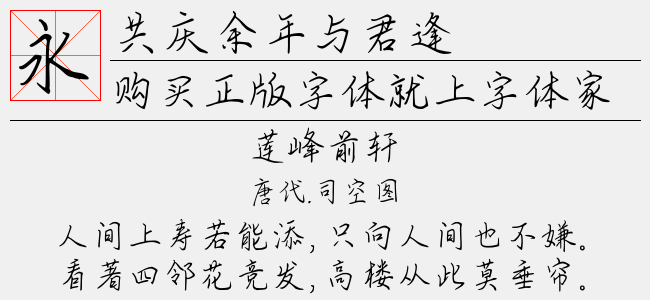 永
共庆余年与君逢
购买正版字体就上字体家
莲峰前轩
唐代.司空图
人间上寿若能添,只向人间也不嫌。
看著四邻花竞发,高楼从此莫垂帘。